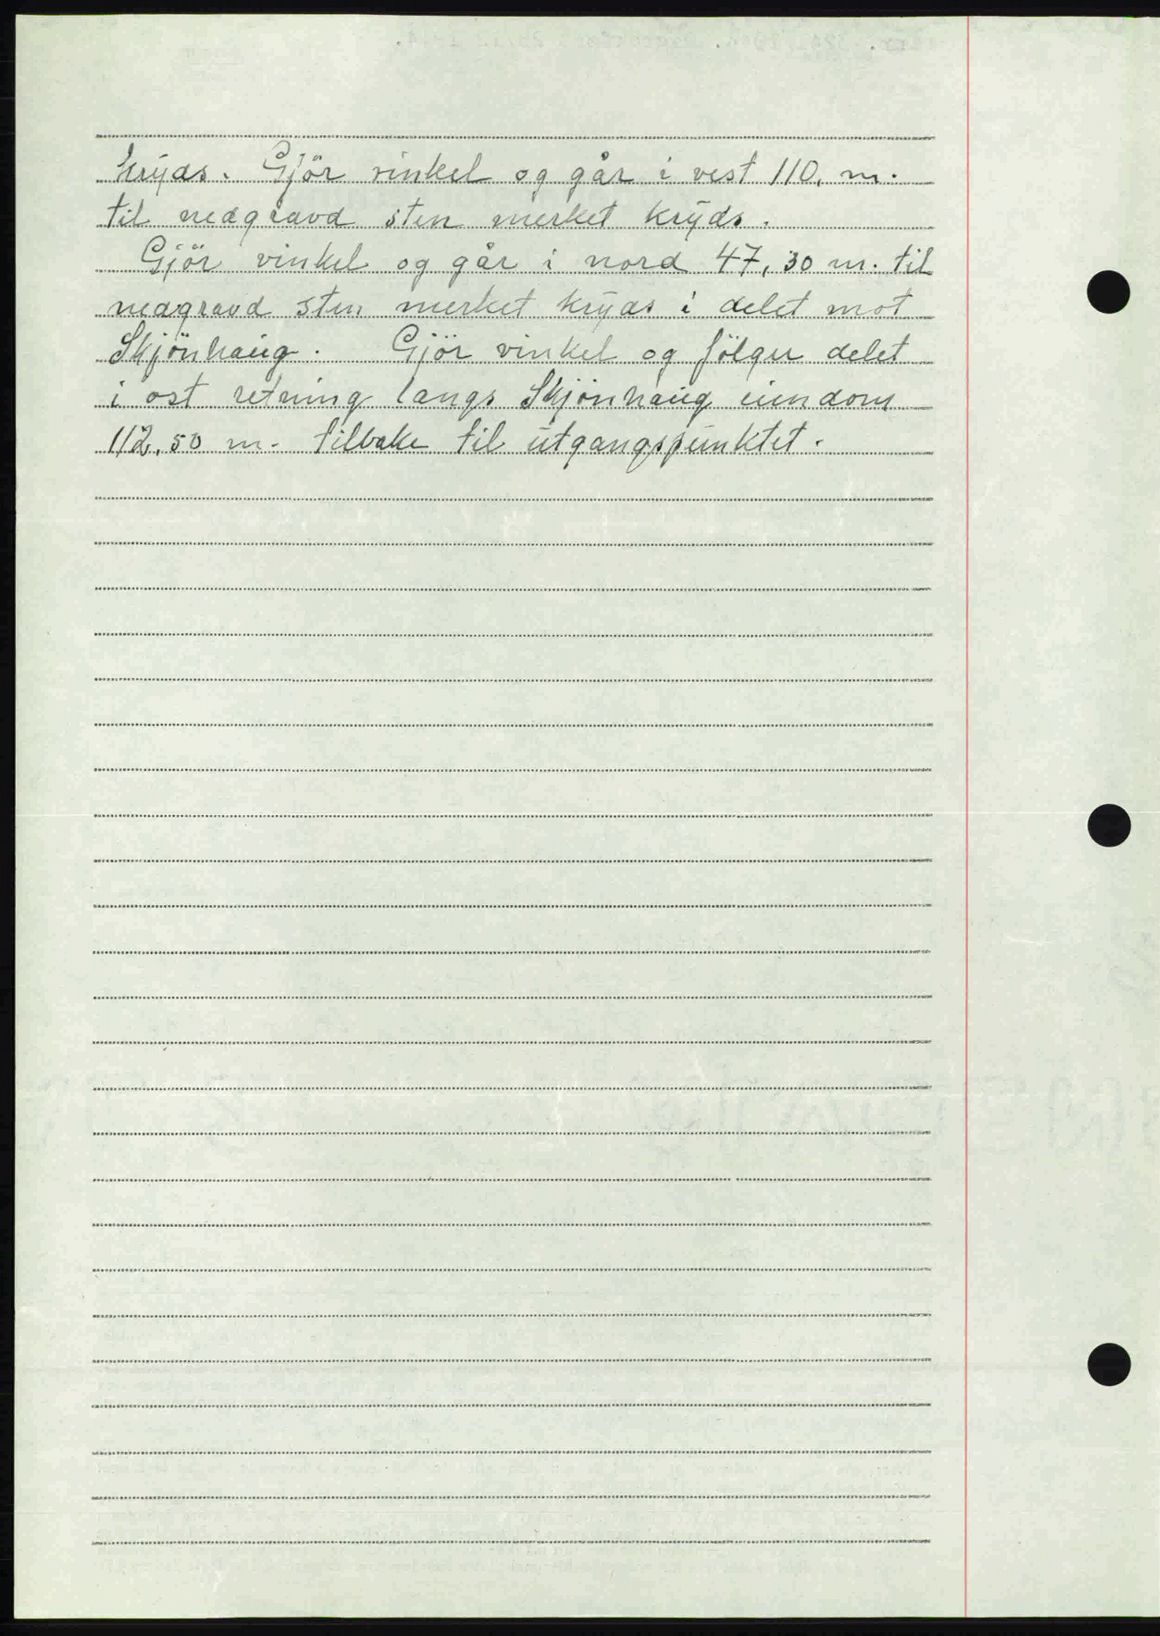 kryds. Gjör vinkel og går i vest 110, m.
til nedgravd sten merket kryds.
Gjör vinkel og går i nord 47,30 m. til
nedgravd sten merket kryds i delet mot
Skjönhaug. Gjör vinkel og fölger delet
i ost retning langs Skjönhaug eiendom
112,50 m. tilbake til utgangspunktet.